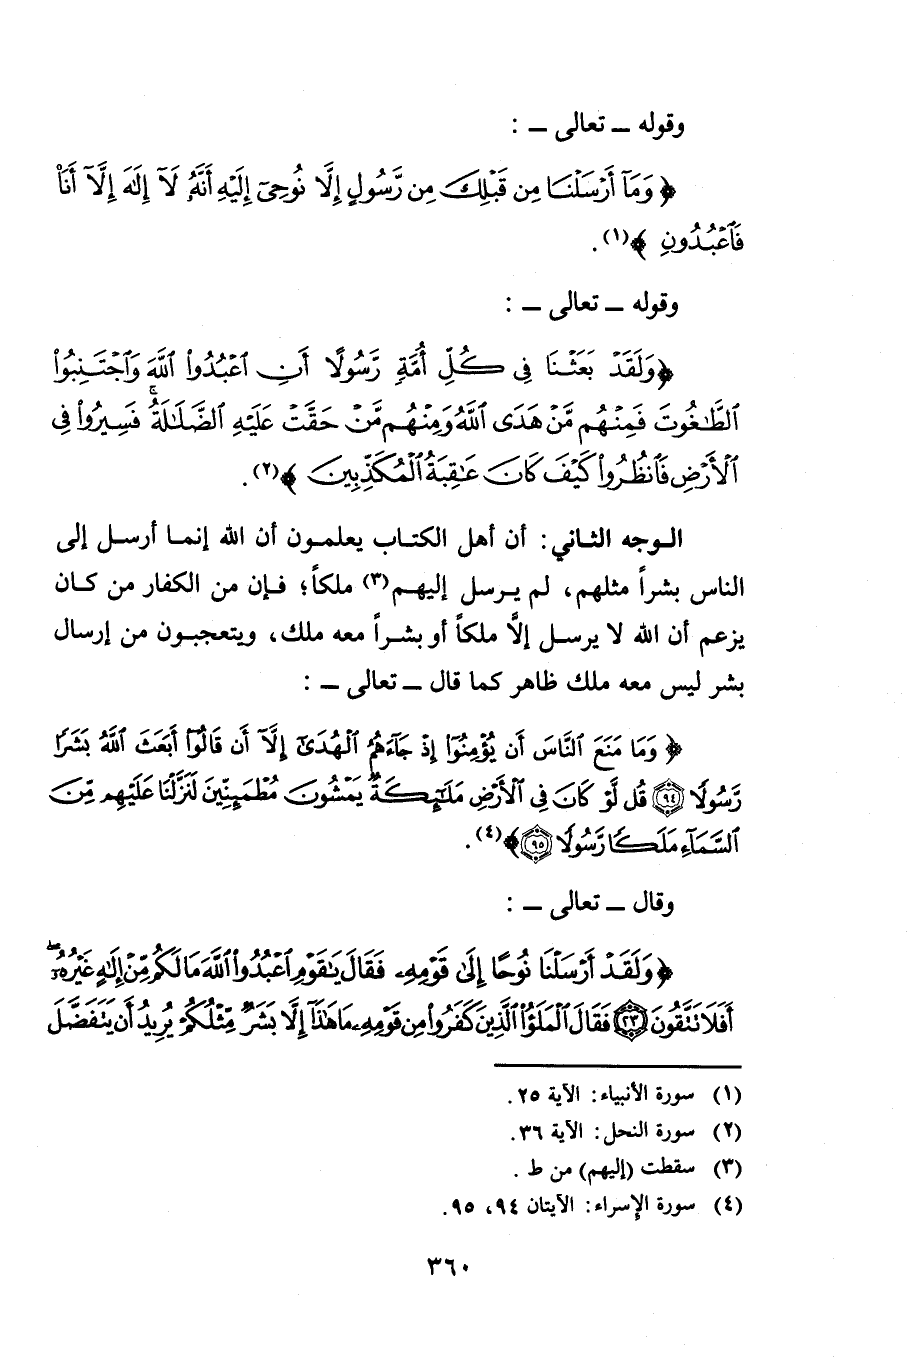 وقوله ــ تعالى ــ :
﴿ وَمَآ أَرْسَلْنَا مِن قَبْلِكَ مِن رَّسُولٍ إِلَّا نُوحِىٓ إِلَيْهِ أَنَّهُۥ لَآ إِلَٰهَ إِلَّآ أَنَا۠
فَٱعْبُدُونِ ﴾(١).
وقوله ــ تعالى ــ :
﴿وَلَقَدْ بَعَثْنَا فِى كُلِّ أُمَّةٍ رَّسُولًا أَنِ ٱعْبُدُوا۟ ٱللَّهَ وَٱجْتَنِبُوا۟
ٱلطَّٰغُوتَ فَمِنْهُم مَّنْ هَدَى ٱللَّهُ وَمِنْهُم مَّنْ حَقَّتْ عَلَيْهِ ٱلضَّلَٰلَةُ ۚ فَسِيرُوا۟ فِى
ٱلْأَرْضِ فَٱنظُرُوا۟ كَيْفَ كَانَ عَٰقِبَةُ ٱلْمُكَذِّبِينَ ﴾(٢).
الـوجه الثـاني: أن أهل الكتـاب يعلمـون أن الله إنمـا أرسـل إلى
الناس بشراً مثلهم، لم يـرسل إليهـم(٣) ملكاً؛ فـإن من الكفار من كـان
يزعم أن الله لا يرسـل إلَّا ملكاً أو بشـراً معه ملك، ويتعجبـون من إرسال
بشر ليس معه ملك ظاهر كما قال ــ تعالى ــ :
﴿ وَمَا مَنَعَ ٱلنَّاسَ أَن يُؤْمِنُوٓا۟ إِذْ جَآءَهُمُ ٱلْهُدَىٰٓ إِلَّآ أَن قَالُوٓا۟ أَبَعَثَ ٱللَّهُ بَشَرًا
رَّسُولًا ٩٤ قُل لَّوْ كَانَ فِى ٱلْأَرْضِ مَلَٰٓئِكَةٌ يَمْشُونَ مُطْمَئِنِّينَ لَنَزَّلْنَا عَلَيْهِم مِّنَ
ٱلسَّمَآءِ مَلَكًا رَّسُولًا ٩٥﴾(٤).
وقال ــ تعالى ــ :
﴿وَلَقَدْ أَرْسَلْنَا نُوحًا إِلَىٰ قَوْمِهِۦ فَقَالَ يَٰقَوْمِ ٱعْبُدُوا۟ ٱللَّهَ مَا لَكُم مِّنْ إِلَٰهٍ غَيْرُهُۥٓ ۖ
أَفَلَا تَتَّقُونَ ٢٣ فَقَالَ ٱلْمَلَؤُا۟ ٱلَّذِينَ كَفَرُوا۟ مِن قَوْمِهِۦ مَا هَٰذَآ إِلَّا بَشَرٌ مِّثْلُكُمْ يُرِيدُ أَن يَتَفَضَّلَ
(١) سورة الأنبياء: الآية ٢٥.
(٢) سورة النحل: الآية ٣٦.
(٣) سقطت (إليهم) من ط .
(٤) سورة الإسراء: الآيتان ٩٤، ٩٥.
٣٦٠